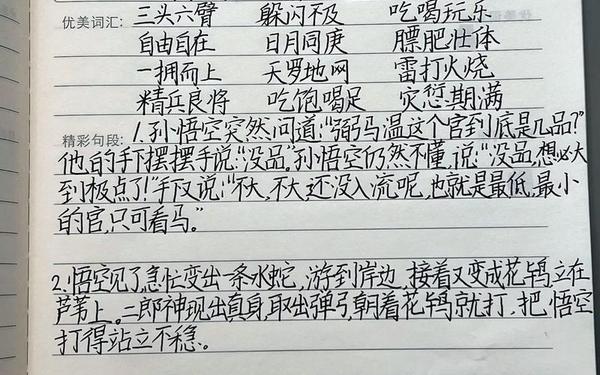 优美词汇: 三头六臂 躲闪不及 吃喝玩乐
自由自在 日月同庚 膘肥壮体
一拥而上 天罗地网 雷打火烧
精兵良将 吃饱喝足 灾愆期满
精彩句段: 1.孙悟空突然问道:“弼马温这个官到底是几品?”
他的手下摆摆手说“没品。”孙悟空仍然不懂,说:“没品,想必大
到极点了!”手下又说:“不大,不大,还没入流呢,也就是最低,最小
的官,只可看马。”
2.悟空见了,急忙变出一条水蛇,游到岸边,接着又变成花鸨,立在
芦苇上。二郎神现出真身,取出弹弓,朝着花鸨就打,把悟空
打得站立不稳。